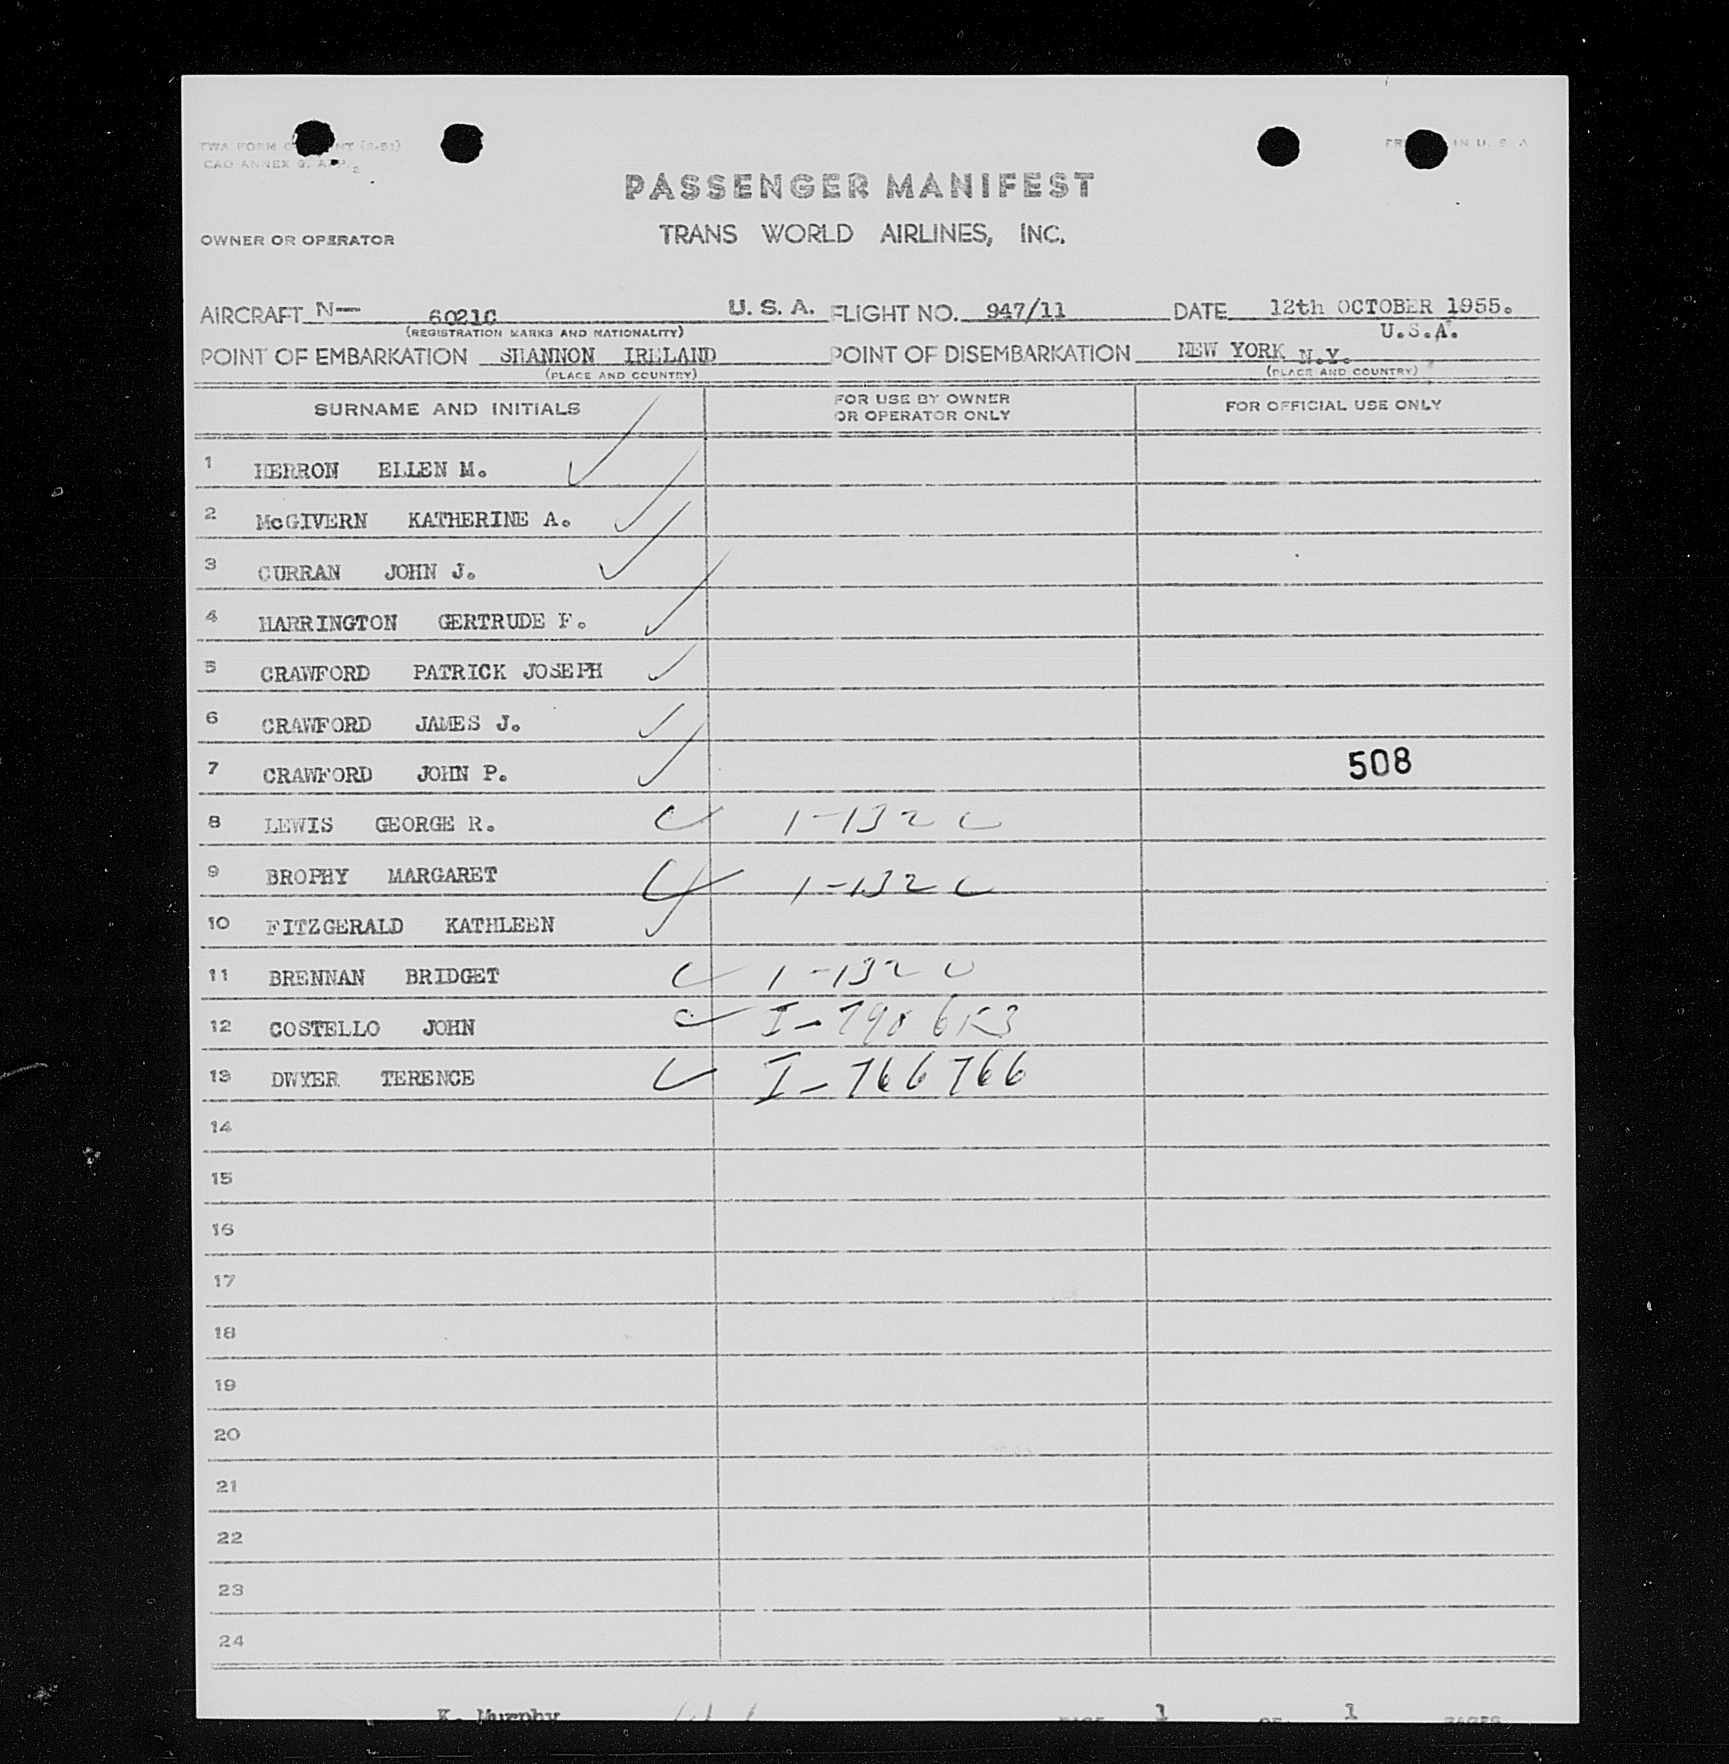 TWA FORM
CAO ANNEX 9. APP. 2
PASSENGER MANIFEST
OWNER OR OPERATOR TRANS WORLD AIRLINES, INC.
AIRCRAFT N— 6021C U. S. A. FLIGHT NO. 947/11 DATE 12th OCTOBER 1955.
(REGISTRATION MARKS AND NATIONALITY) U.S.A.
POINT OF EMBARKATION SHANNON IRELAND POINT OF DISEMBARKATION NEW YORK N.Y.
(PLACE AND COUNTRY) (PLACE AND COUNTRY)
SURNAME AND INITIALS FOR USE BY OWNER OR OPERATOR ONLY FOR OFFICIAL USE ONLY
1 HERRON ELLEN M.
2 McGIVERN KATHERINE A.
3 CURRAN JOHN J.
4 HARRINGTON GERTRUDE F.
5 CRAWFORD PATRICK JOSEPH
6 CRAWFORD JAMES J.
7 CRAWFORD JOHN P. 508
8 LEWIS GEORGE R. 1-132 C
9 BROPHY MARGARET 1-132 C
10 FITZGERALD KATHLEEN
11 BRENNAN BRIDGET 1-132 C
12 COSTELLO JOHN
13 DWYER TERENCE I-766766
14
15
16
17
18
19
20
21
22
23
24
K. Murphy PAGE 1 OF 1 PAGES